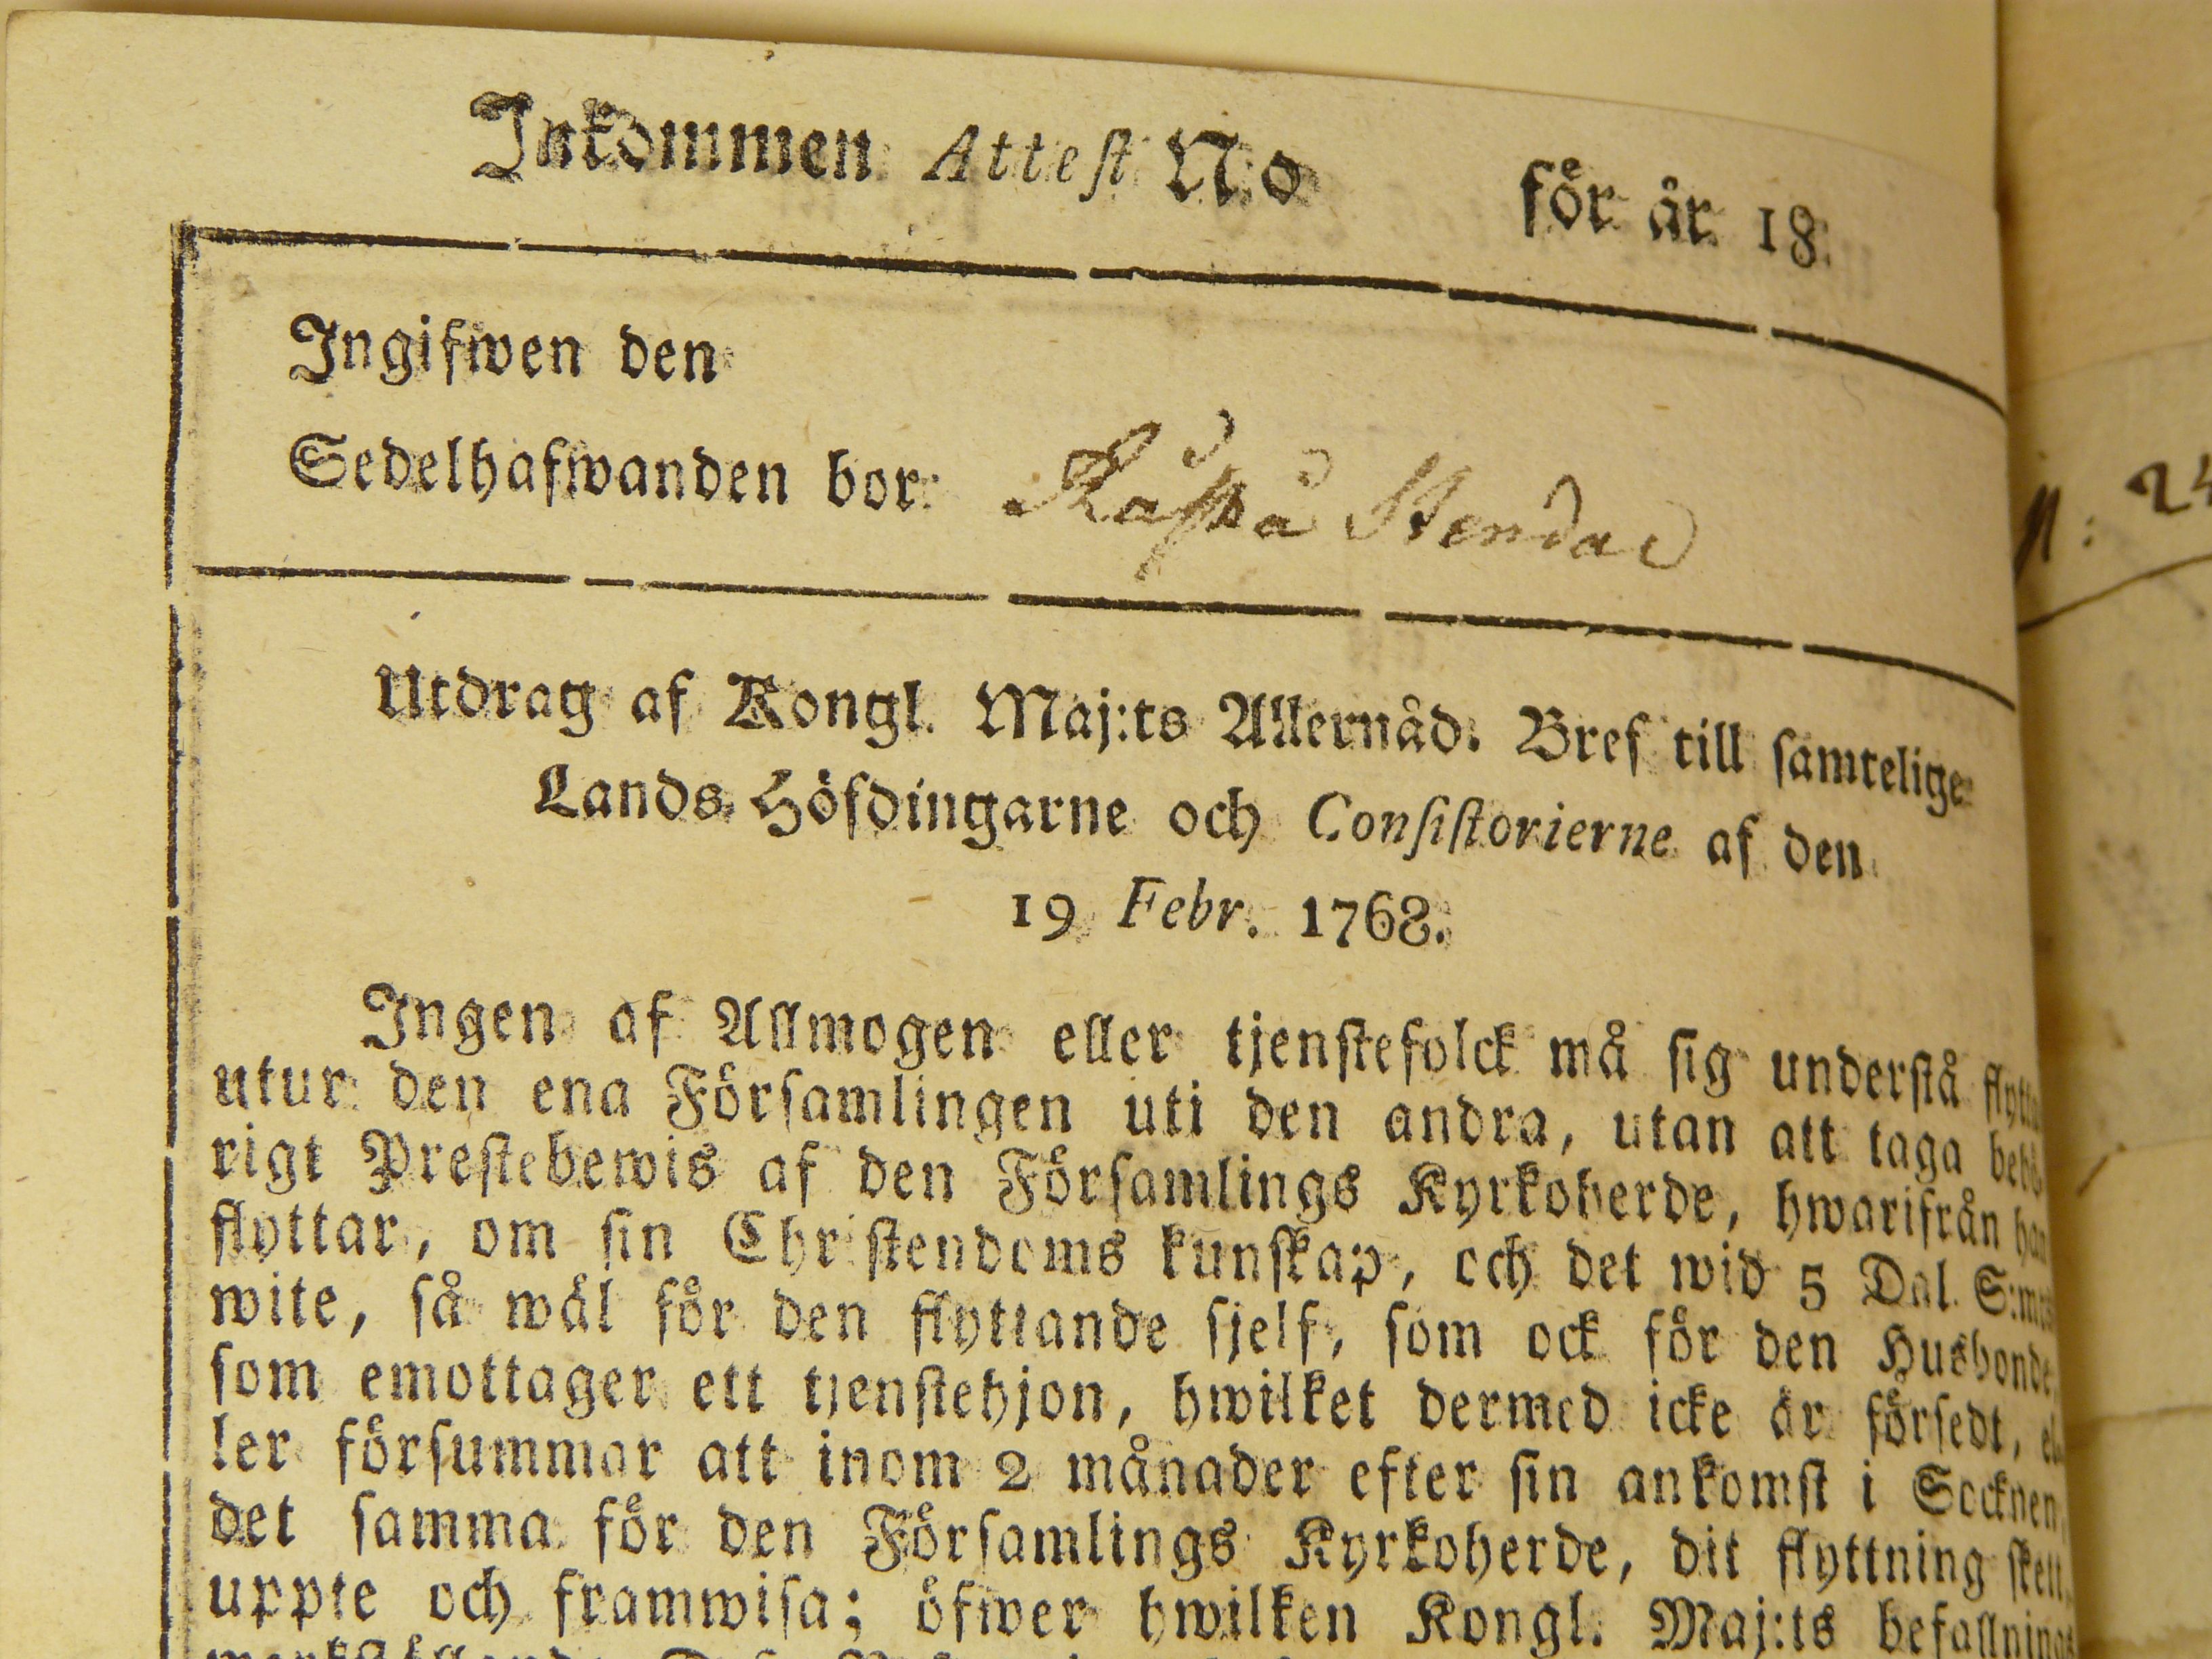 Inkommen Attest N:o för år 18
Ingifwen den
Sedelhafwanden bor
Utdrag af Kongl. Maj:ts Allernåd. Bref till samtelige
Lands Höfdingarne och Consistorierne af den
19 Febr. 1768.
Ingen af Allmogen eller tjenstefolck må sig understå
utur den ena Församlingen uti den andra, utan att taga
rigt Prestebewis af den Församlings Kyrkoherde, hwarifrån han
flyttar, om sin Christendoms kunskap, och det wid 5 Dal. S:mts
wite, så wäl för den flyttande sjelf, som ock för den Husbonde,
som emottager ett tjenstehjon, hwilket dermed icke är försedt, el
ler försummar att inom 2 månader efter sin ankomst i Socknen,
det samma för den Församlings Kyrkoherde, dit flyttning skett,
uppte och framwisa; öfwer hwilken Kongl. Maj:ts befallnings
N: 24